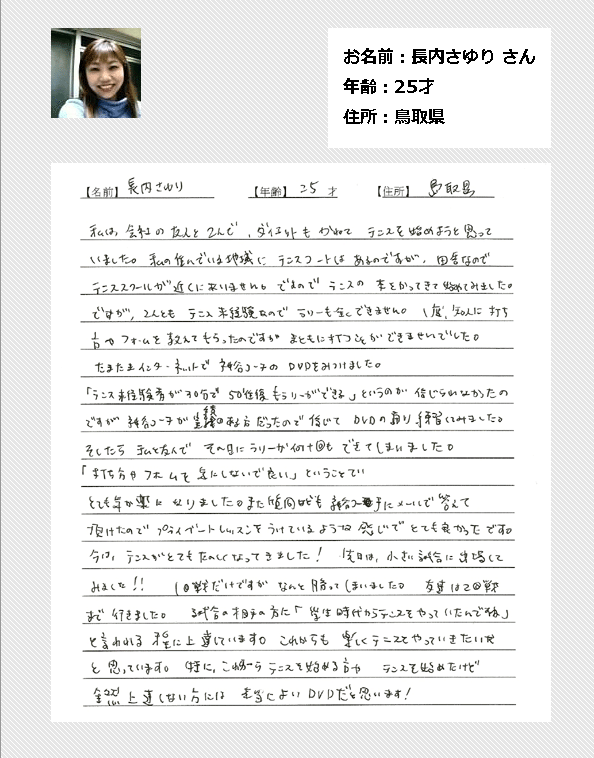 お名前：長内さゆり さん
年齢：25才
住所：鳥取県
【名前】長内さゆり 【年齢】25才 【住所】鳥取県
私は、会社の友人と2人で、ダイエットもかねて テニスを始めようと思って
いました。私の住んでいる地域に テニスコートは あるのですが、田舎なので
テニススクールが近くにありません。ですので テニスの 本をかってきて始めてみました。
ですが、2人とも テニス未経験なので ラリーも全くできません。1度、知人に打ち
方やフォームを教えてもらったのですが まともに打つことができませんでした。
たまたまインターネットで 神谷コーチの DVDをみつけました。
「テニス未経験者が30分で 50往復もラリーができる」というのが 信じられなかったの
ですが 神谷コーチが実績のある方だったので信じて DVDの通り 練習してみました。
そしたら 私と友人で その日に ラリーが何十回も できてしまいました。
「打ち方やフォームを気にしないで良い」ということで
とても気が楽に なりました。また質問なども 神谷コーチにメールで 答えて
頂けたので プライベートレッスンをうけているような 感じで とても良かったです。
今は、テニスがとてもたのしくなってきました！ 先日は、小さい試合に 出場して
みました!! 1回戦だけですが なんと 勝ってしまいました。 友達は2回戦
まで 行きました。 試合の相手の方に「学生時代からテニスをやっていたんですね」
と言われる 程に上達しています。これからも 楽しくテニスをやっていきたいな
と 思っています。特に、これから テニスを始める方や テニスを始めたけど
全然上達しない方には 本当によい DVDだと思います！